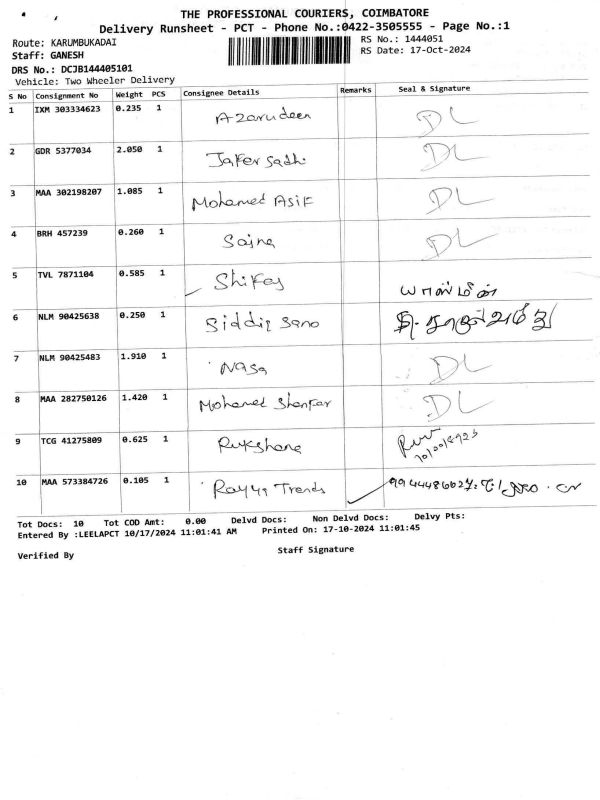 THE PROFESSIONAL COURIERS, COIMBATORE
Delivery Runsheet - PCT - Phone No.:0422-3505555 - Page No.:1
Route: KARUMBUKADAI
RS No.: 1444051
Staff: GANESH
RS Date: 17-Oct-2024
DRS No.: DCJB144405101
Vehicle: Two Wheeler Delivery
S No Consignment No Weight PCS Consignee Details Remarks Seal & Signature
1 IXM 303334623 0.235 1 Azarudeen DL
2 GDR 5377034 2.050 1 Jafer Sadhi DL
3 MAA 302198207 1.085 1 Mohamed Asif DL
4 BRH 457239 0.260 1 Sajna DL
5 TVL 7871104 0.585 1 Shifas யாஸ்மீன்
6 NLM 90425638 0.250 1 Siddiq Sano
7 NLM 90425483 1.910 1 Nasa DL
8 MAA 282750126 1.420 1 Mohamed Shankar DL
9 TCG 41275809 0.625 1 Rukshana
10 MAA 573384726 0.105 1 Rayya Trends
Tot Docs: 10 Tot COD Amt: 0.00 Delvd Docs: Non Delvd Docs: Delvy Pts:
Entered By :LEELAPCT 10/17/2024 11:01:41 AM Printed On: 17-10-2024 11:01:45
Verified By Staff Signature